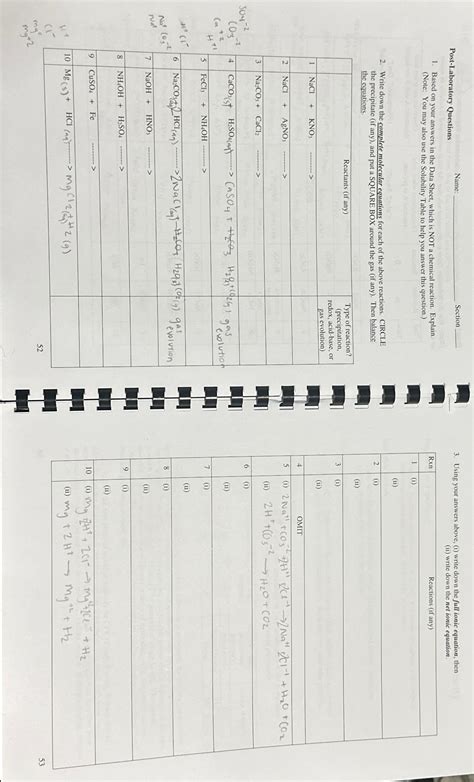 Post-Laboratory Questions
Name: Section
1. Based on your answers in the Data Sheet, which is NOT a chemical reaction. Explain
(Note: You may also use the Solubility Table to help you answer this question.)
2. Write down the complete molecular equations for each of the above reactions. CIRCLE
the precipitate (if any), and put a SQUARE BOX around the gas (if any). Then balance
the equations.
Reactants (if any)
Type of reaction?
(precipitation,
redox, acid-base, or
gas evolution)
1 NaCl + KNO₃ ------->
2 NaCl + AgNO₃ ------->
3 Na₂CO₃ + CaCl₂ ------->
4 CaCO₃(s) H₂SO₄(aq) -------> CaSO₄ + H₂CO₃ gas
evolution
5 FeCl₃ + NH₄OH ------->
6 Na₂CO₃ HCl(aq) -------> 2NaCl(aq) H₂CO₃ gas
evolution
7 NaOH + HNO₃ ------->
8 NH₄OH + H₂SO₄ ------->
9 CuSO₄ + Fe ------->
10 Mg(s) + HCl(aq) ------->
52
3. Using your answers above, (i) write down the full ionic equation, then
(ii) write down the net ionic equation.
Rxn Reactions (if any)
1 (i)
(ii)
2 (i)
(ii)
3 (i)
(ii)
4 OMIT
5 (i)
(ii) 2H⁺ + CO₃⁻² → H₂O + CO₂
6 (i)
(ii)
7 (i)
(ii)
8 (i)
(ii)
9 (i)
(ii)
10 (i)
(ii) Mg + 2H⁺ → Mg⁺² + H₂
53